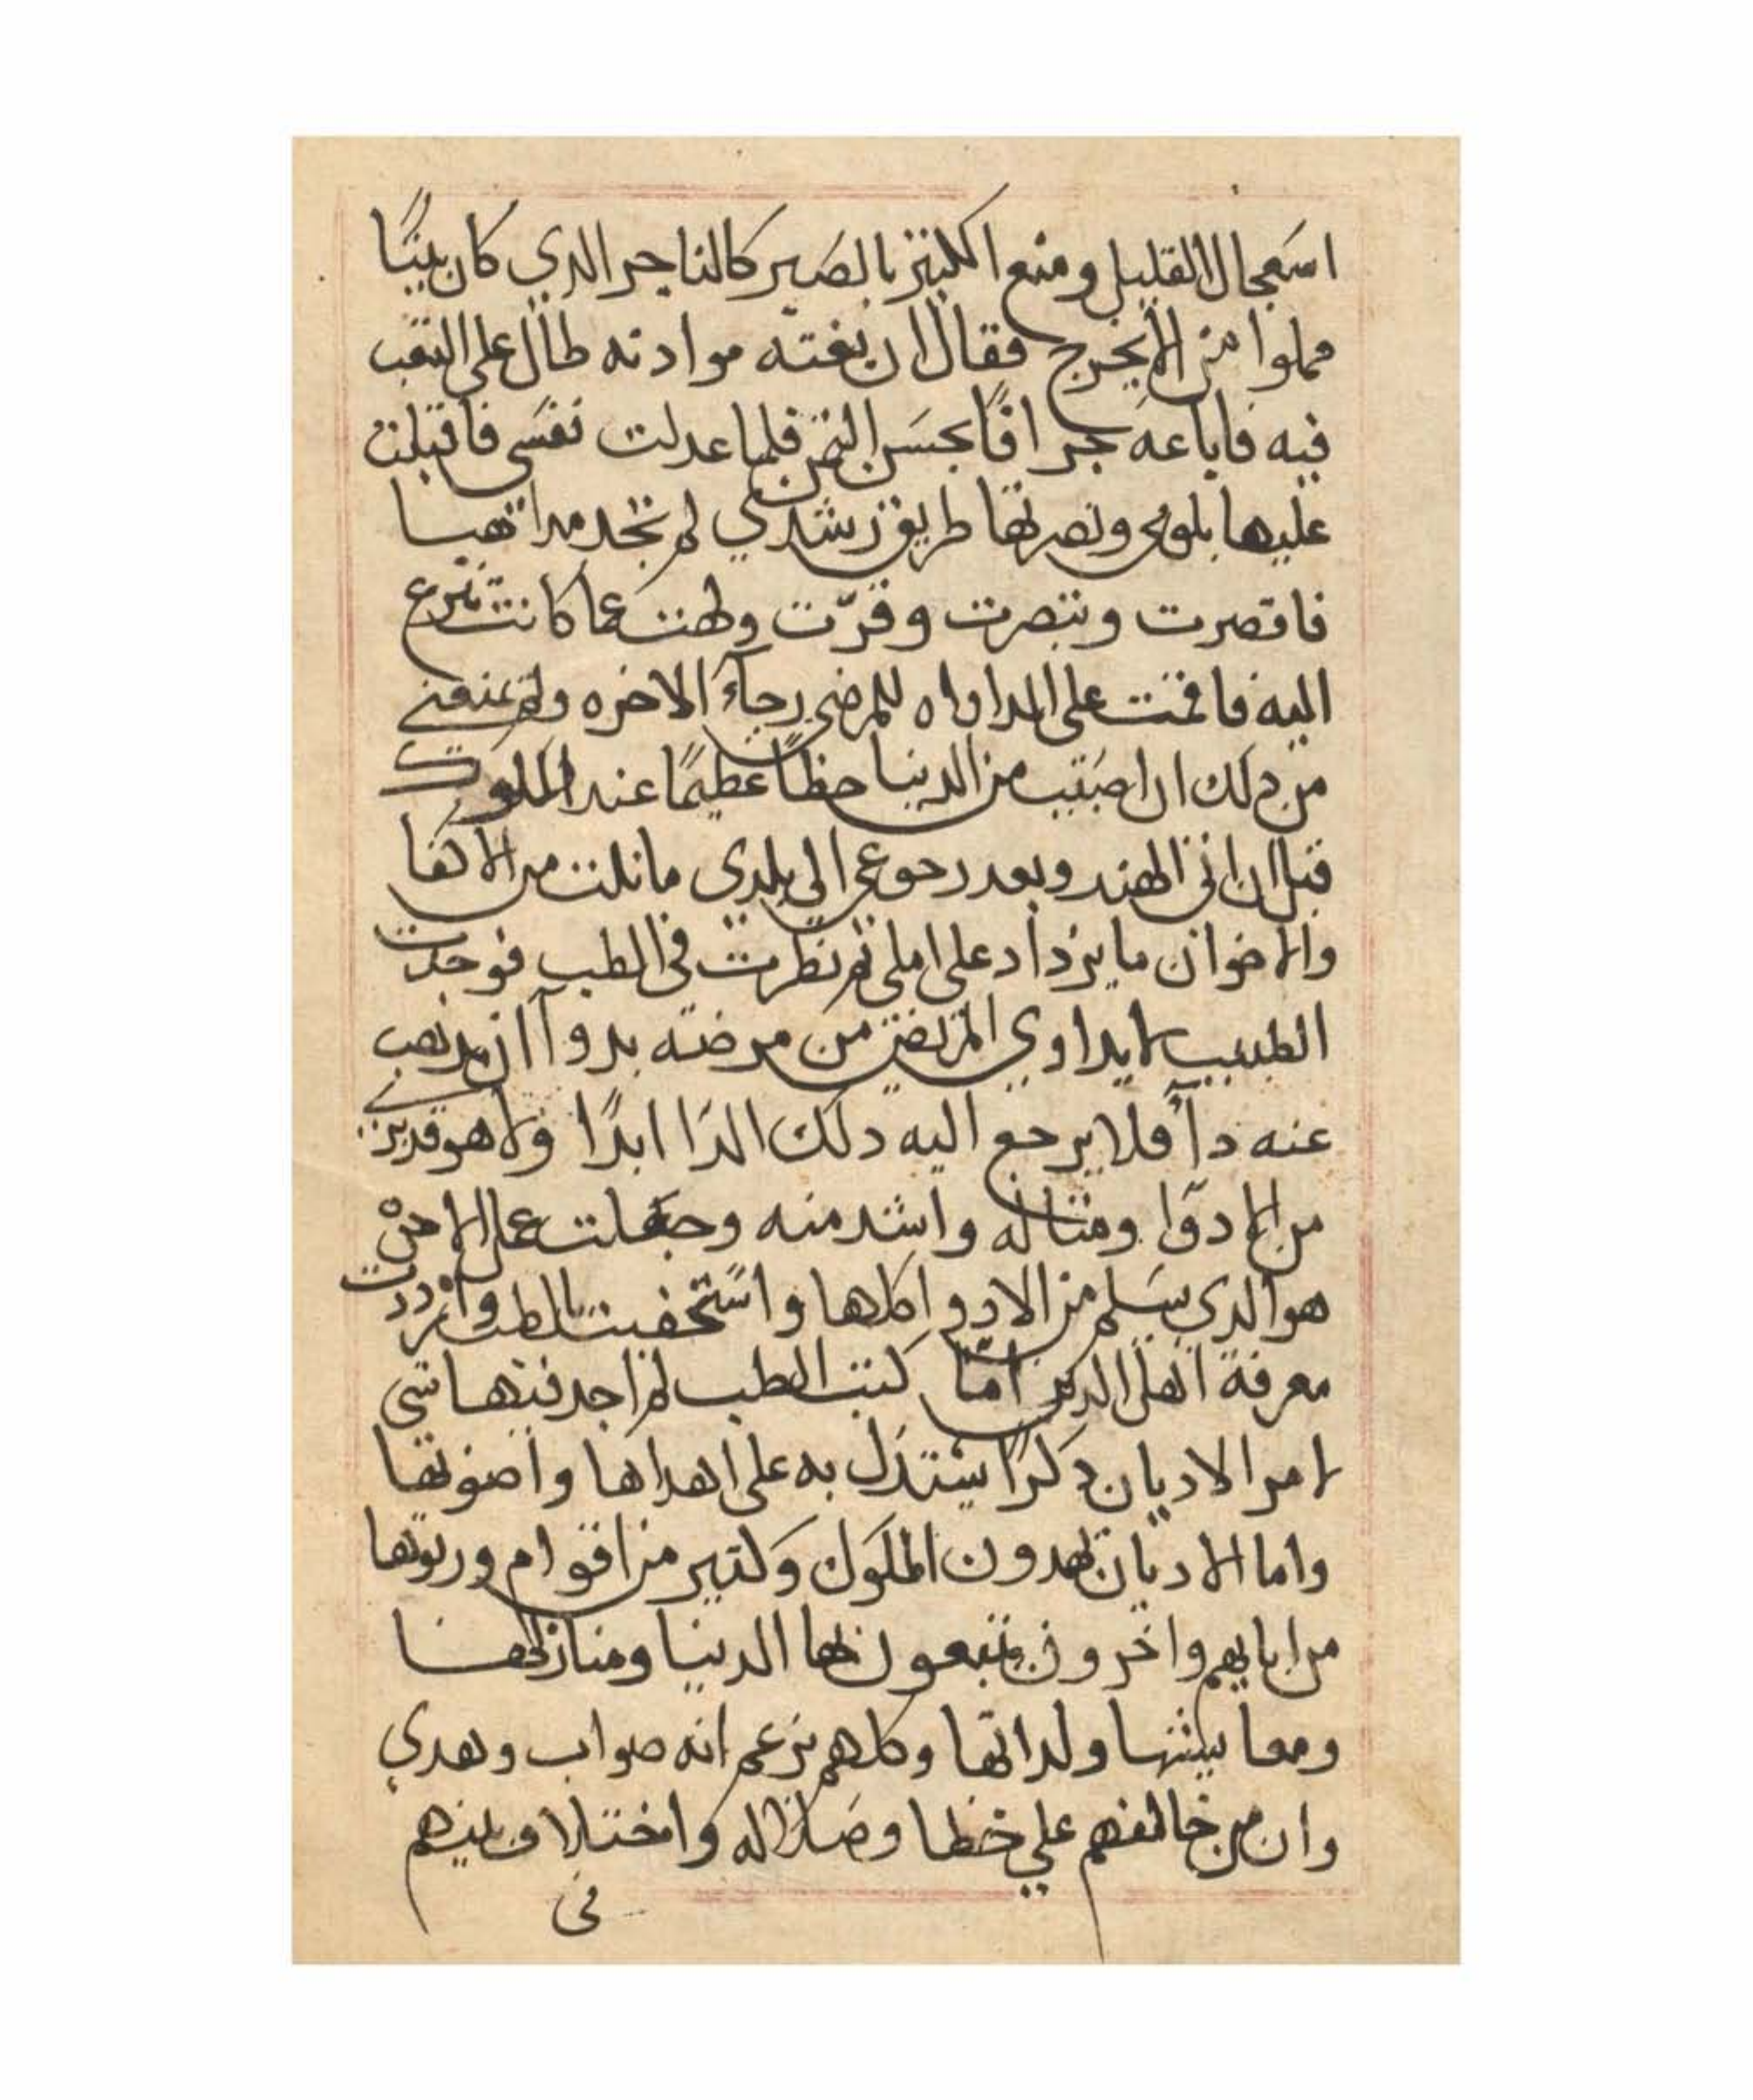 استعجال القليل ومنع الكثير بالصبر كالتاجر الدي كان بيتا
مملوا من الايحرج فقال ان بعته موادنه طال على التعب
فيه فاباعه جرافا بحسن الثمن فلما عدلت نفسي فاقبلت
عليها بلومي وبصرتها طريق رشدي لم تجد مداهبا
فاقصرت وتبصرت وقرت ولهت عما كانت تنزع
اليه فاقمت على المداواه للمرضى رجآء الاخره ولم يمنعني
من دلك ان اصبت من الدنيا حظا عظيما عند الملوك
قبل ان اتي الهند وبعد رجوعي الى بلدي ما نلت من الاكفا
والاخوان ما يزداد على املي ثم نظرت في الطب فوجدت
الطبيب لا يداوي المريض من مرضه بدوآ ان يدهب
عنه دآ فلا يرجع اليه دلك الدا ابدا ولا هو قريب
من الادوا ومثاله واشد منه وجعلت عمل الاخره
هو الدي يسلم من الادوا كلها واستخفيت بالطب وازددت
معرفة اهل الدين اما كتب الطب لم اجد فيها شي
لامر الاديان دكرا يستدل به على اهداها واصوبها
واما الاديان يهدون الملوك وكتير من اقوام ورتوها
من ابايهم واخرون يتبعون بها الدنيا ومنازلها
ومعايشها ولداتها وكلهم يزعم انه صواب وهدي
وان من خالفهم على خطا وضلاله واختلاف بينهم
في